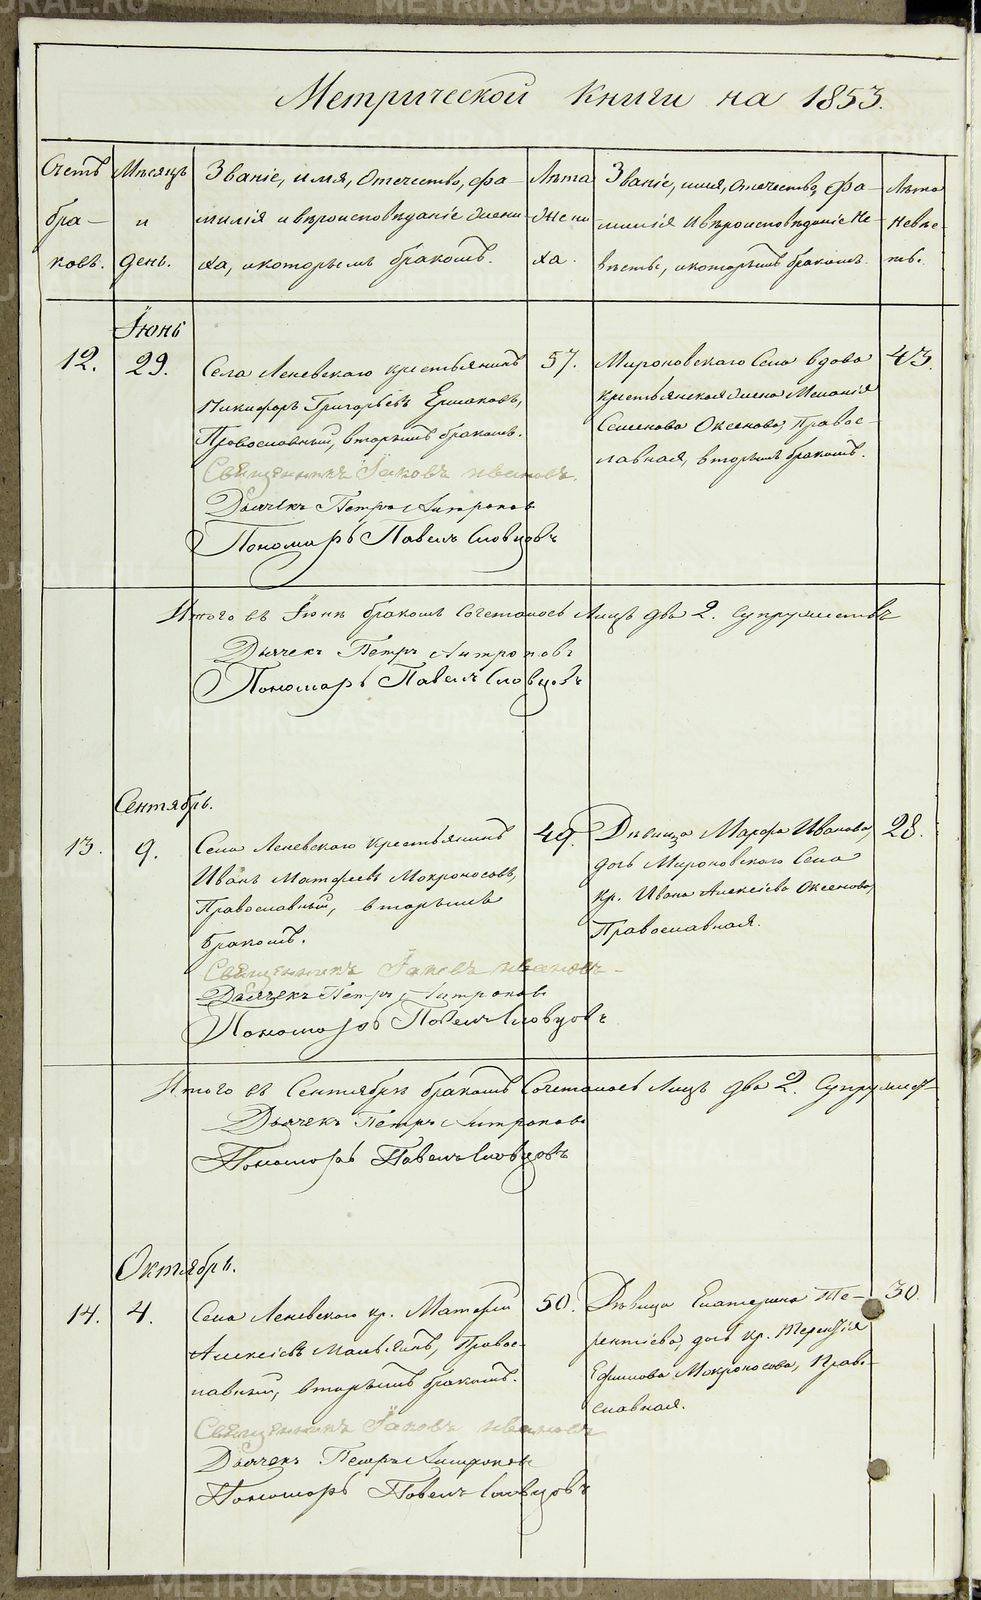 Метрической книги на 1853.
Счетъ бра- ковъ.
Мѣсяцъ и день.
Званіе, имя, отечество, фа-
милія и вѣроисповѣданіе жени-
ха, и которымъ бракомъ.
Лѣта жени- ха.
Званіе, имя, отечество, фа-
милія и вѣроисповѣданіе не-
вѣсты, и которымъ бракомъ.
Лѣта невѣс- ты.
Іюнь
12.
29.
Села Леневскаго крестьянинъ
Никифоръ Григорьевъ Ермаковъ,
Православный, вторымъ бракомъ.
57.
Мироновскаго Села вдова
крестьянская жена Меланія
Семенова Оксенова, Правос-
лавная, вторымъ бракомъ.
43.
Священникъ Іаковъ Ивановъ.
Дьячекъ Петръ
Пономарь Павелъ Словцовъ
Итого въ Іюнѣ бракомъ сочеталось лицъ два 2. супружествъ
Дьячекъ Петръ
Пономарь Павелъ Словцовъ
Сентябрь.
13.
9.
Села Леневскаго крестьянинъ
Иванъ Матфеевъ Мокроносовъ,
Православный, вторымъ
бракомъ.
49.
Дѣвица Марфа Иванова,
дочь Мироновскаго Села
кр. Ивана Алексѣева Оксенова,
Православная.
28.
Священникъ Іаковъ Ивановъ
Дьячекъ Петръ
Пономарь Павелъ Словцовъ
Итого въ Сентябрѣ бракомъ Сочеталось лицъ два 2. Супружест
Дьячекъ Петръ
Пономарь Павелъ Словцовъ
Октябрь.
14.
4.
Села Леневскаго кр. Матфей
Алексѣевъ Мальгинъ, Правос-
лавный, вторымъ бракомъ.
50.
Дѣвица Екатерина Те-
рентіева, дочь кр. Терентія
Ефимова Мокроносова, Прав-
славная.
30.
Священникъ Іаковъ Ивановъ
Дьячекъ Петръ
Пономарь Павелъ Словцовъ
METRIKI.GASU-URAL.RU